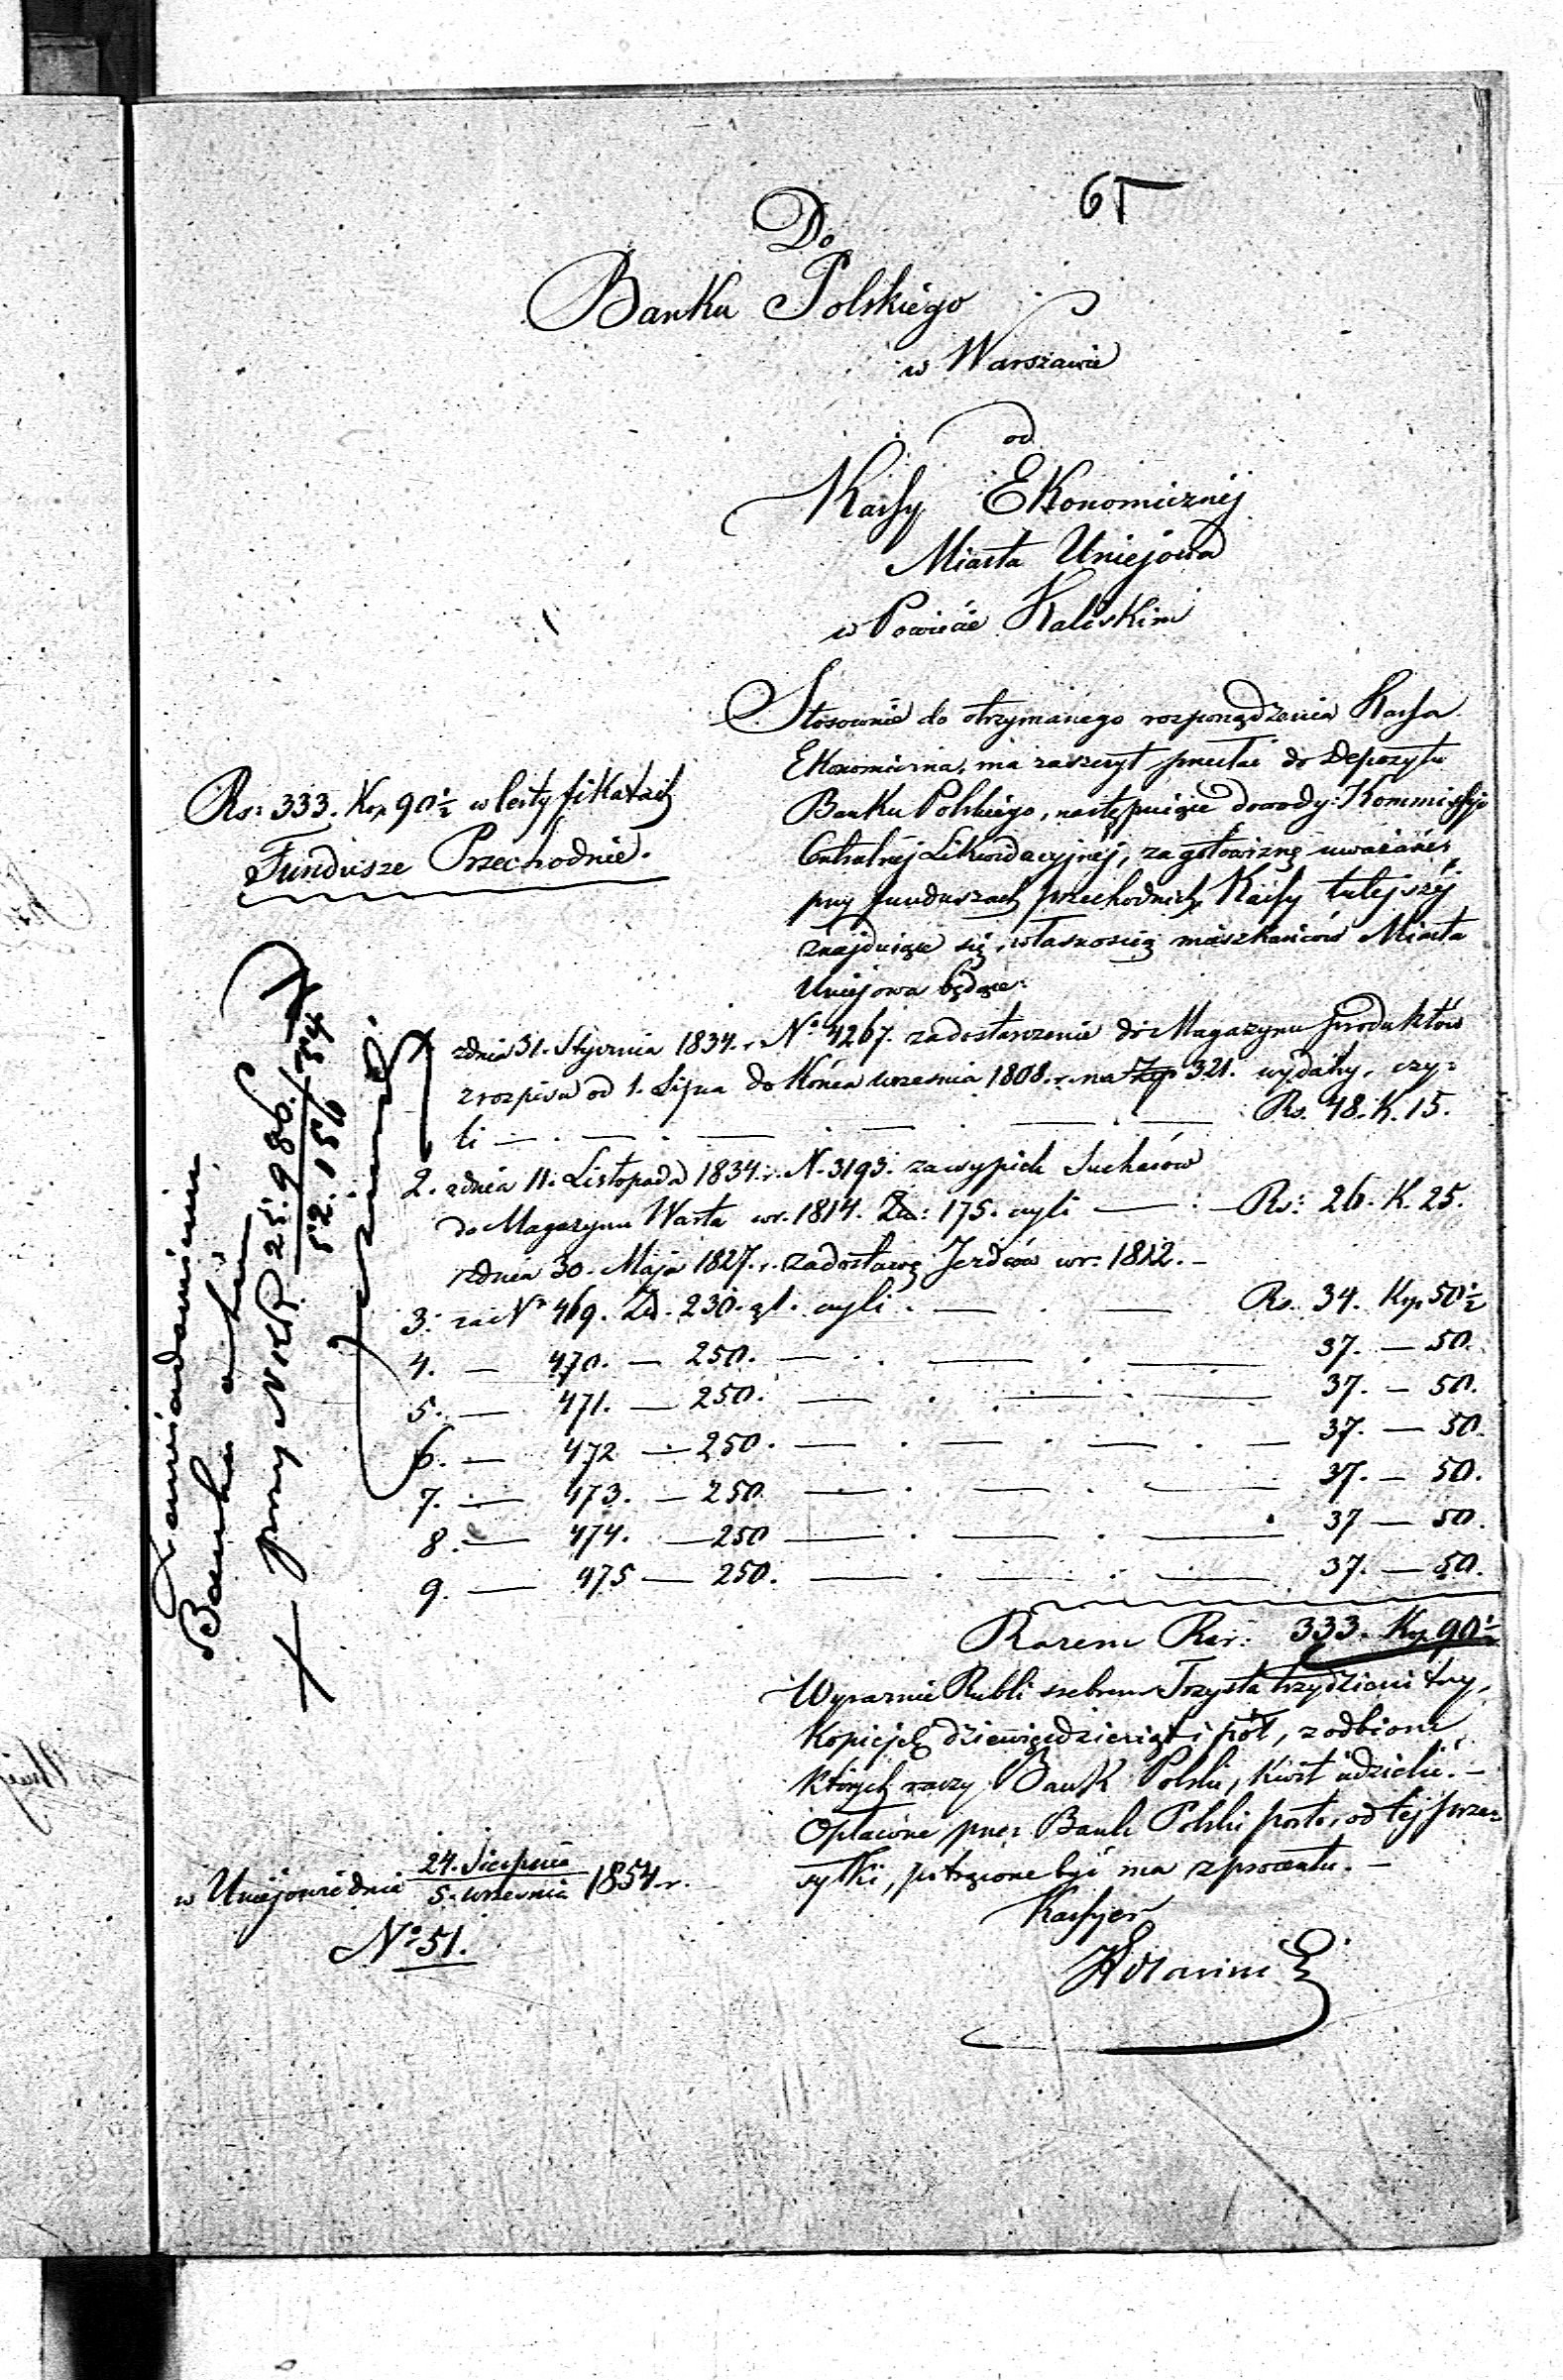 65
Do
Banku Polskiego
w Warszawie
od
Kassy Ekonomicznéj
Miasta Uniejowa
w Powiecie Kaliskim
Rs: 333. Kop. 90½ w Certyfikatach
Fundusze Przechodnie.
Stosownie do otrzymanego rozporządzenia Kassa
Ekonomiczna, ma zaszczyt przesłać do Depozytu
Banku Polskiego, następuiące dowody Kommissyi
Centralnéj Likwidacyjnéj, za gotowiznę uważane,
przy funduszach przechodnich Kassy tutejszéj
znajduiące się, własnością mieszkańców Miasta
Uniejowa będące:
z dnia 31. Stycznia 1834. r. No 4267. za dostarczenie do Magazynu produktów
z rozpisu od 1. Lipca do końca września 1808. r. na Zp. 321. wydany, czy=
li — . — . — . — . — Rs. 48. K. 15.
2. z dnia 11. Listopada 1834. r. N. 3193. za wypiek Sucharów
do Magazynu Warta w r. 1814. Zł: 175. czyli — : — Rs: 26. K. 25.
z dnia 30. Maja 1827. r. za dostawę Jeźdców w r: 1812. —
3. za No 469. Zł. 230. czyli . — . — Rs. 34. Kop. 50½
4. — 470. — 250. — . — . — 37. — 50.
5. — 471. — 250. — . — . — 37. — 50.
6. — 472 — 250. — . — . — 37. — 50.
7. — 473. — 250. — . — . — 37. — 50.
8. — 474. — 250 — . — . — 37 — 50.
9. — 475 — 250. — . — . — 37. — 50.
Razem Rsr: 333. Kop. 90½
Wyraźnie Rubli srebrem Trzysta trzydzieści trzy,
Kopiejek dziewięćdziesiąt i pół, z odbioru
których raczy Bank Polski, kwit udzielić. —
Opłacone przez Bank Polski porto, od téj prze=
syłki, potrącone być ma z procentu. —
Kassyer
w Uniejowie dnia 24. Sierpnia / 5. września 1854 r.
No 51.
Zawiadomieniu
Banku
przy NKP 25.986./52.156 54